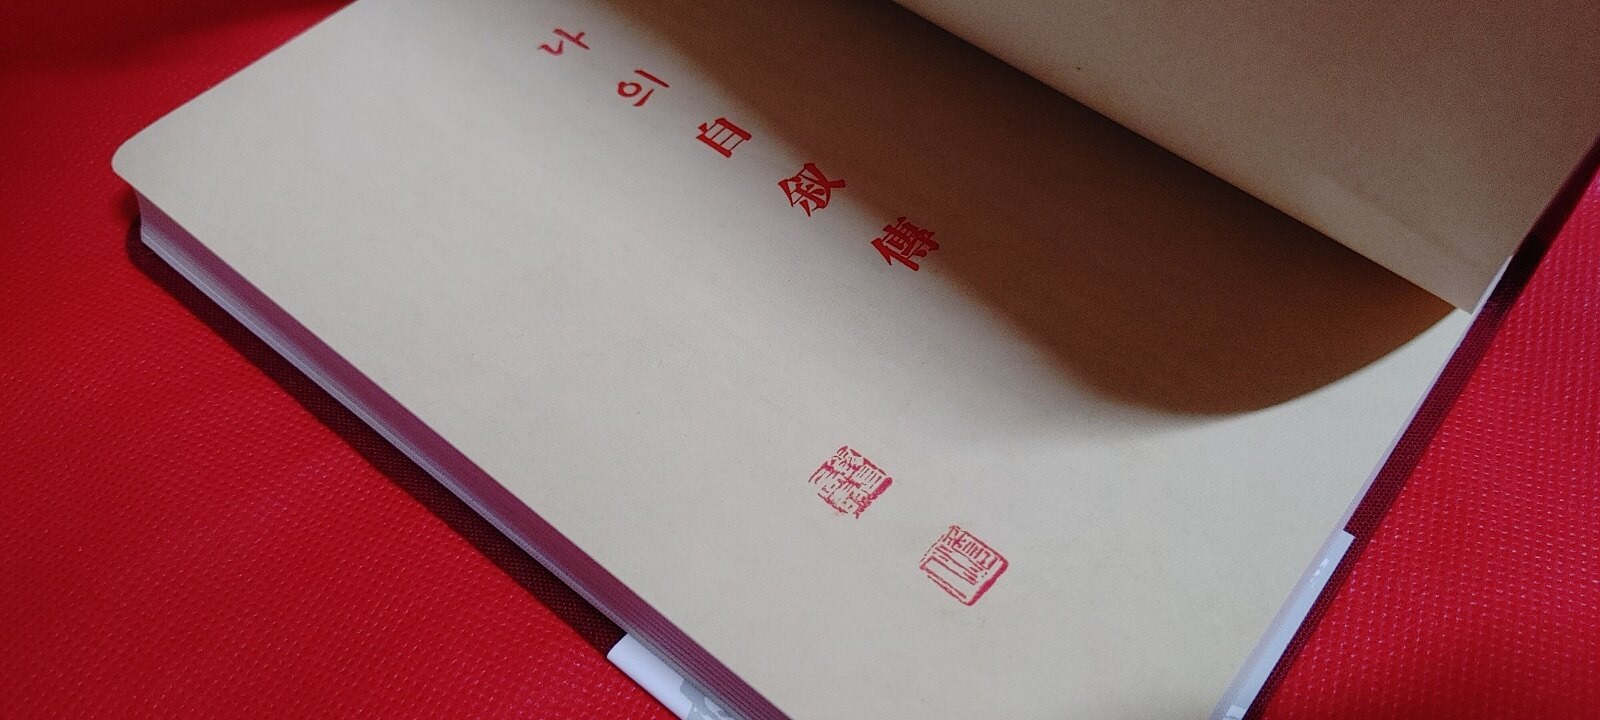 나의 自敍傳